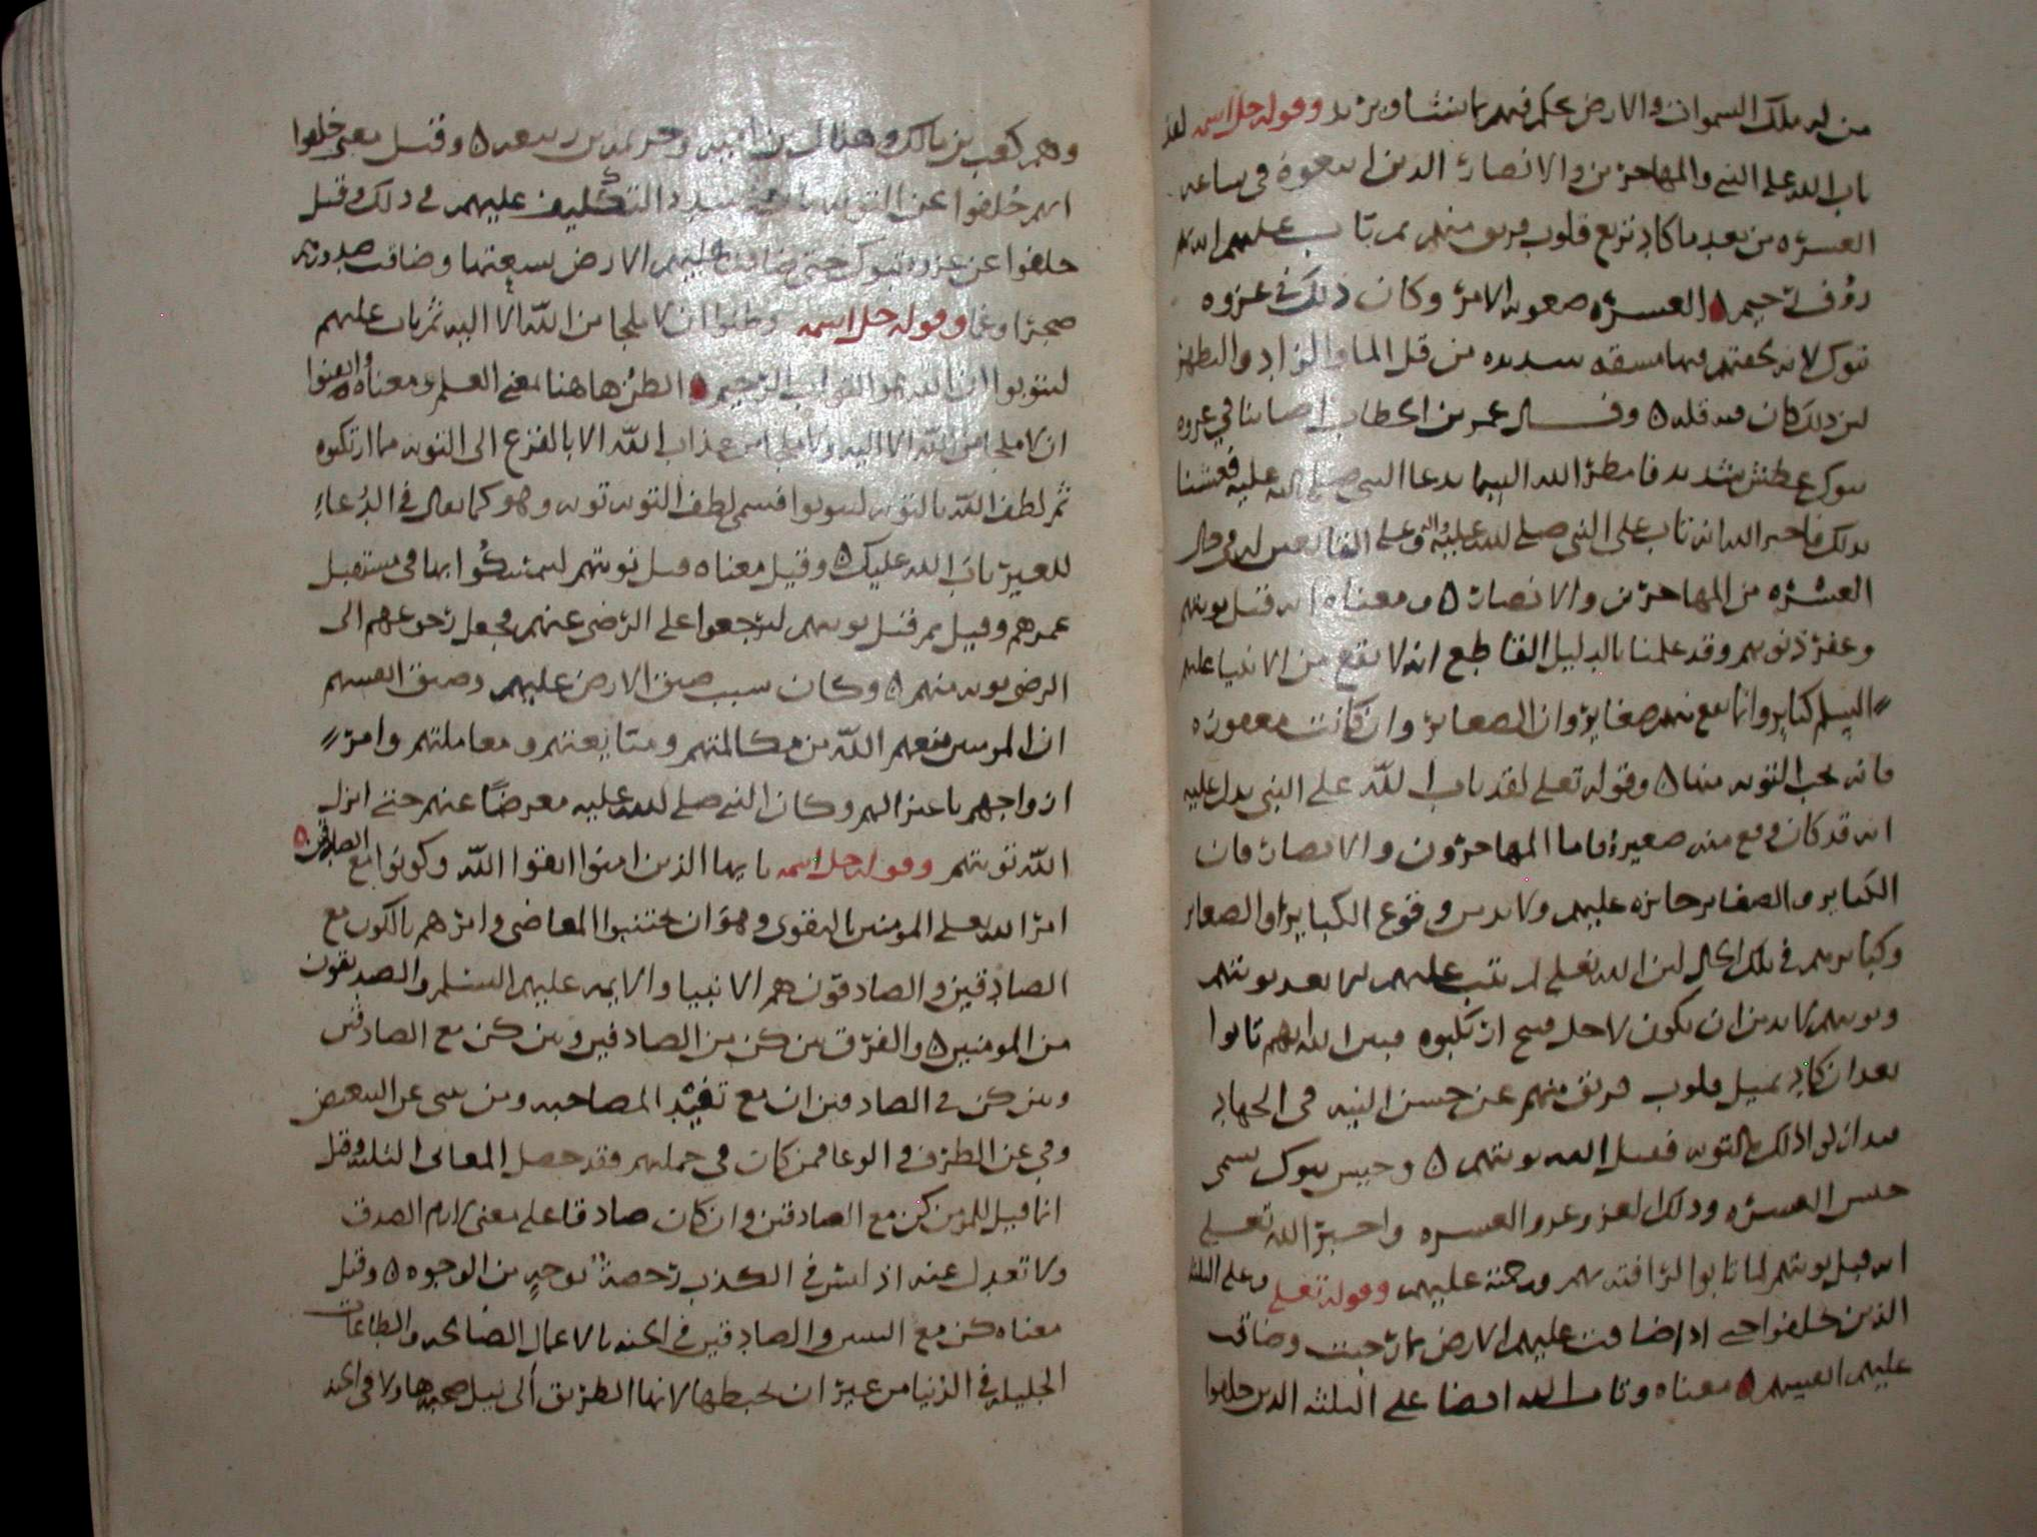 من له ملك السموات والارض يحكم فيهم بما يشا ويريد وقوله جل اسمه لقد
تاب الله على النبي والمهاجرين والانصار الذين اتبعوه في ساعه
العسره من بعد ما كاد تزيغ قلوب فريق منهم ثم تاب عليهم انه بهم
رؤف رحيم ٥ العسره صعوبه الامر وكان ذلك في غزوه
تبوك لانه لحقتهم فيها مشقه شديده من قله الما والزاد والظهر
لان ذلك كان فيه قله ٥ وقال عمر بن الخطاب اصابنا في غزوه
تبوك عطش شديد فامطر الله السما بدعا النبي صلى الله عليه فعشنا
بذلك فاخبر الله انه تاب على النبي صلى الله عليه واله وعلى في حال
العسره من المهاجرين والانصار ٥ ومعناه انه قبل توبتهم
وغفر ذنوبهم وقد علمنا بالدليل القاطع انه لا يقع من الانبيا عليهم
السلم كباير وانما تقع منهم صغاير وان الصغاير وان كانت معفوه
فانه تجب التوبه منها ٥ وقوله تعلى لقد تاب الله على النبي يدل عليه
انه قد كان وقع منه صغيره فاما المهاجرون والانصار فان
الكباير والصغاير جايزه عليهم ولا بد من وقوع الكباير او الصغاير
وكبايرهم في تلك الحال لان الله تعلى لم يتب عليهم الا بعد توبتهم
وتوبتهم لا بد من ان يكون لاجل قبيح ارتكبوه فبين الله انهم تابوا
بعد ان كاد يميل قلوب فريق منهم عن حسن النيه في الجهاد
ذلك بالتوبه فقبل الله توبتهم ٥ وجيش تبوك سمي
جيش العسره وذلك العزو غزو العسره واخبر الله تعلى
انه قبل توبتهم لما تابوا لرافته بهم ورحمته عليهم وقوله تعلى وعلى الثلثه
الذين خلفوا حتى اذا ضاقت عليهم الارض بما رحبت وضاقت
عليهم انفسهم ٥ معناه وتاب الله ايضا على الثلثه الذين خلفوا
وهم كعب بن مالك وهلال بن اميه و بن ربيعه ٥ وقيل معنى خلفوا
انهم خلفوا عن التوبه التكليف عليهم في ذلك وقيل
خلفوا عن غزوه تبوك حتى ضاقت عليهم الارض بسعتها وضاقت صدورهم
ضجرا وغما وقوله جل اسمه وظنوا ان لا ملجا من الله الا اليه ثم تاب عليهم
ليتوبوا ان الله هو التواب الرحيم ٥ الظن هاهنا بمعنى العلم ومعناه وايقنوا
ان لا ملجا من الله الا اليه ولا ملجا من عذاب الله الا بالفزع الى التوبه مما ارتكبوه
ثم لطف الله بالتوبه ليتوبوا فسمى لطف التوبه توبه وهو كما يقال في الدعاء
للغير تاب الله عليك ٥ وقيل معناه قبل توبتهم ليتمسكوا بها في مستقبل
عمرهم وقيل ثم قبل توبتهم ليرجعوا على الرضى عنهم فجعل رجوعهم الى
الرضى توبه منهم ٥ وكان سبب ضيق الارض عليهم وضيق انفسهم
ان المومنين منعهم الله من مكالمتهم ومبايعتهم ومعاملتهم وامر
ازواجهم باعتزالهم وكان النبي صلى الله عليه معرضا عنهم حتى انزل
الله توبتهم وقوله جل اسمه يا يها الذين امنوا اتقوا الله وكونوا مع الصادقين ٥
امر الله تعلى المومنين بالتقوى وهو ان يجتنبوا المعاصي وامرهم بالكون مع
الصادقين والصادقون هم الانبيا والايمه عليهم السلم والصديقون
من المومنين ٥ والفرق بين كن من الصادقين وبين كن مع الصادقين
وبين كن في الصادقين ان مع تفيد المصاحبه ومن تنبي عن التبعيض
وفي عن الظرف والوعا فمن كان في جملتهم فقد حصل المعاني الثلثه وقيل
انما قيل للمومن كن مع الصادقين وان كان صادقا على معنى الزم الصدق
ولا تعدل عنه اذ ليس في الكذب رخصة بوجه من الوجوه ٥ وقيل
معناه كن مع النبيين والصادقين في الجنه بالاعمال الصالحه والطاعات
الجليله في الدنيا من غير ان تحبطها لانها الطريق الى نيل صحبتها ولا في الجنه